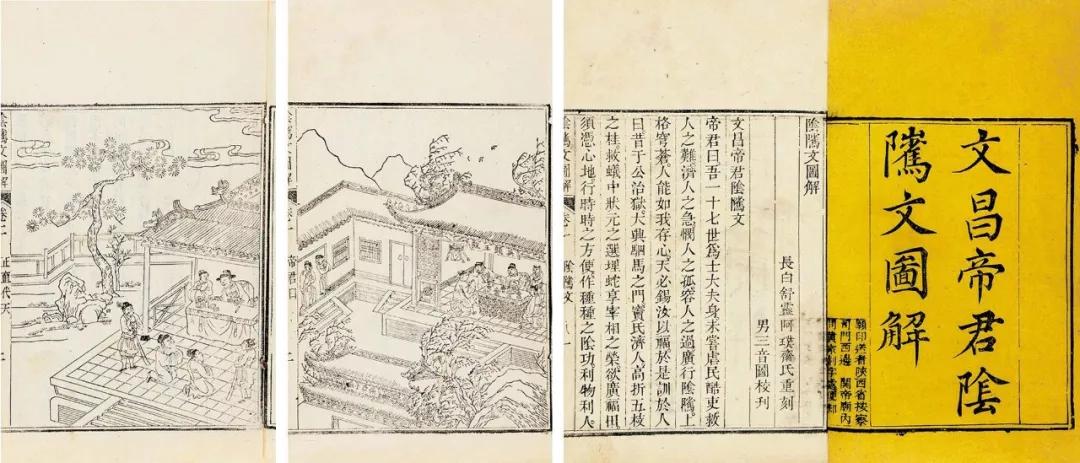 文昌帝君陰
騭文圖解
願印送者陝西省按察
司門西邊 關帝廟內
陰騭文圖解
長白舒靈阿璞齋氏重刻
男三音圖校刊
文昌帝君陰騭文
帝君曰吾一十七世爲士大夫身未嘗虐民酷吏救
人之難濟人之急憫人之孤容人之過廣行陰騭上
格穹蒼人能如我存心天必錫汝以福於是訓於人
曰昔于公治獄大興駟馬之門竇氏濟人高折五枝
之桂救蟻中狀元之選埋蛇享宰相之榮欲廣福田
須憑心地行時時之方便作種種之陰功利物利人
陰騭文圖解 卷一 陰騭文
陰騭文圖解 卷一 帝君曰
陰騭文圖解 卷二